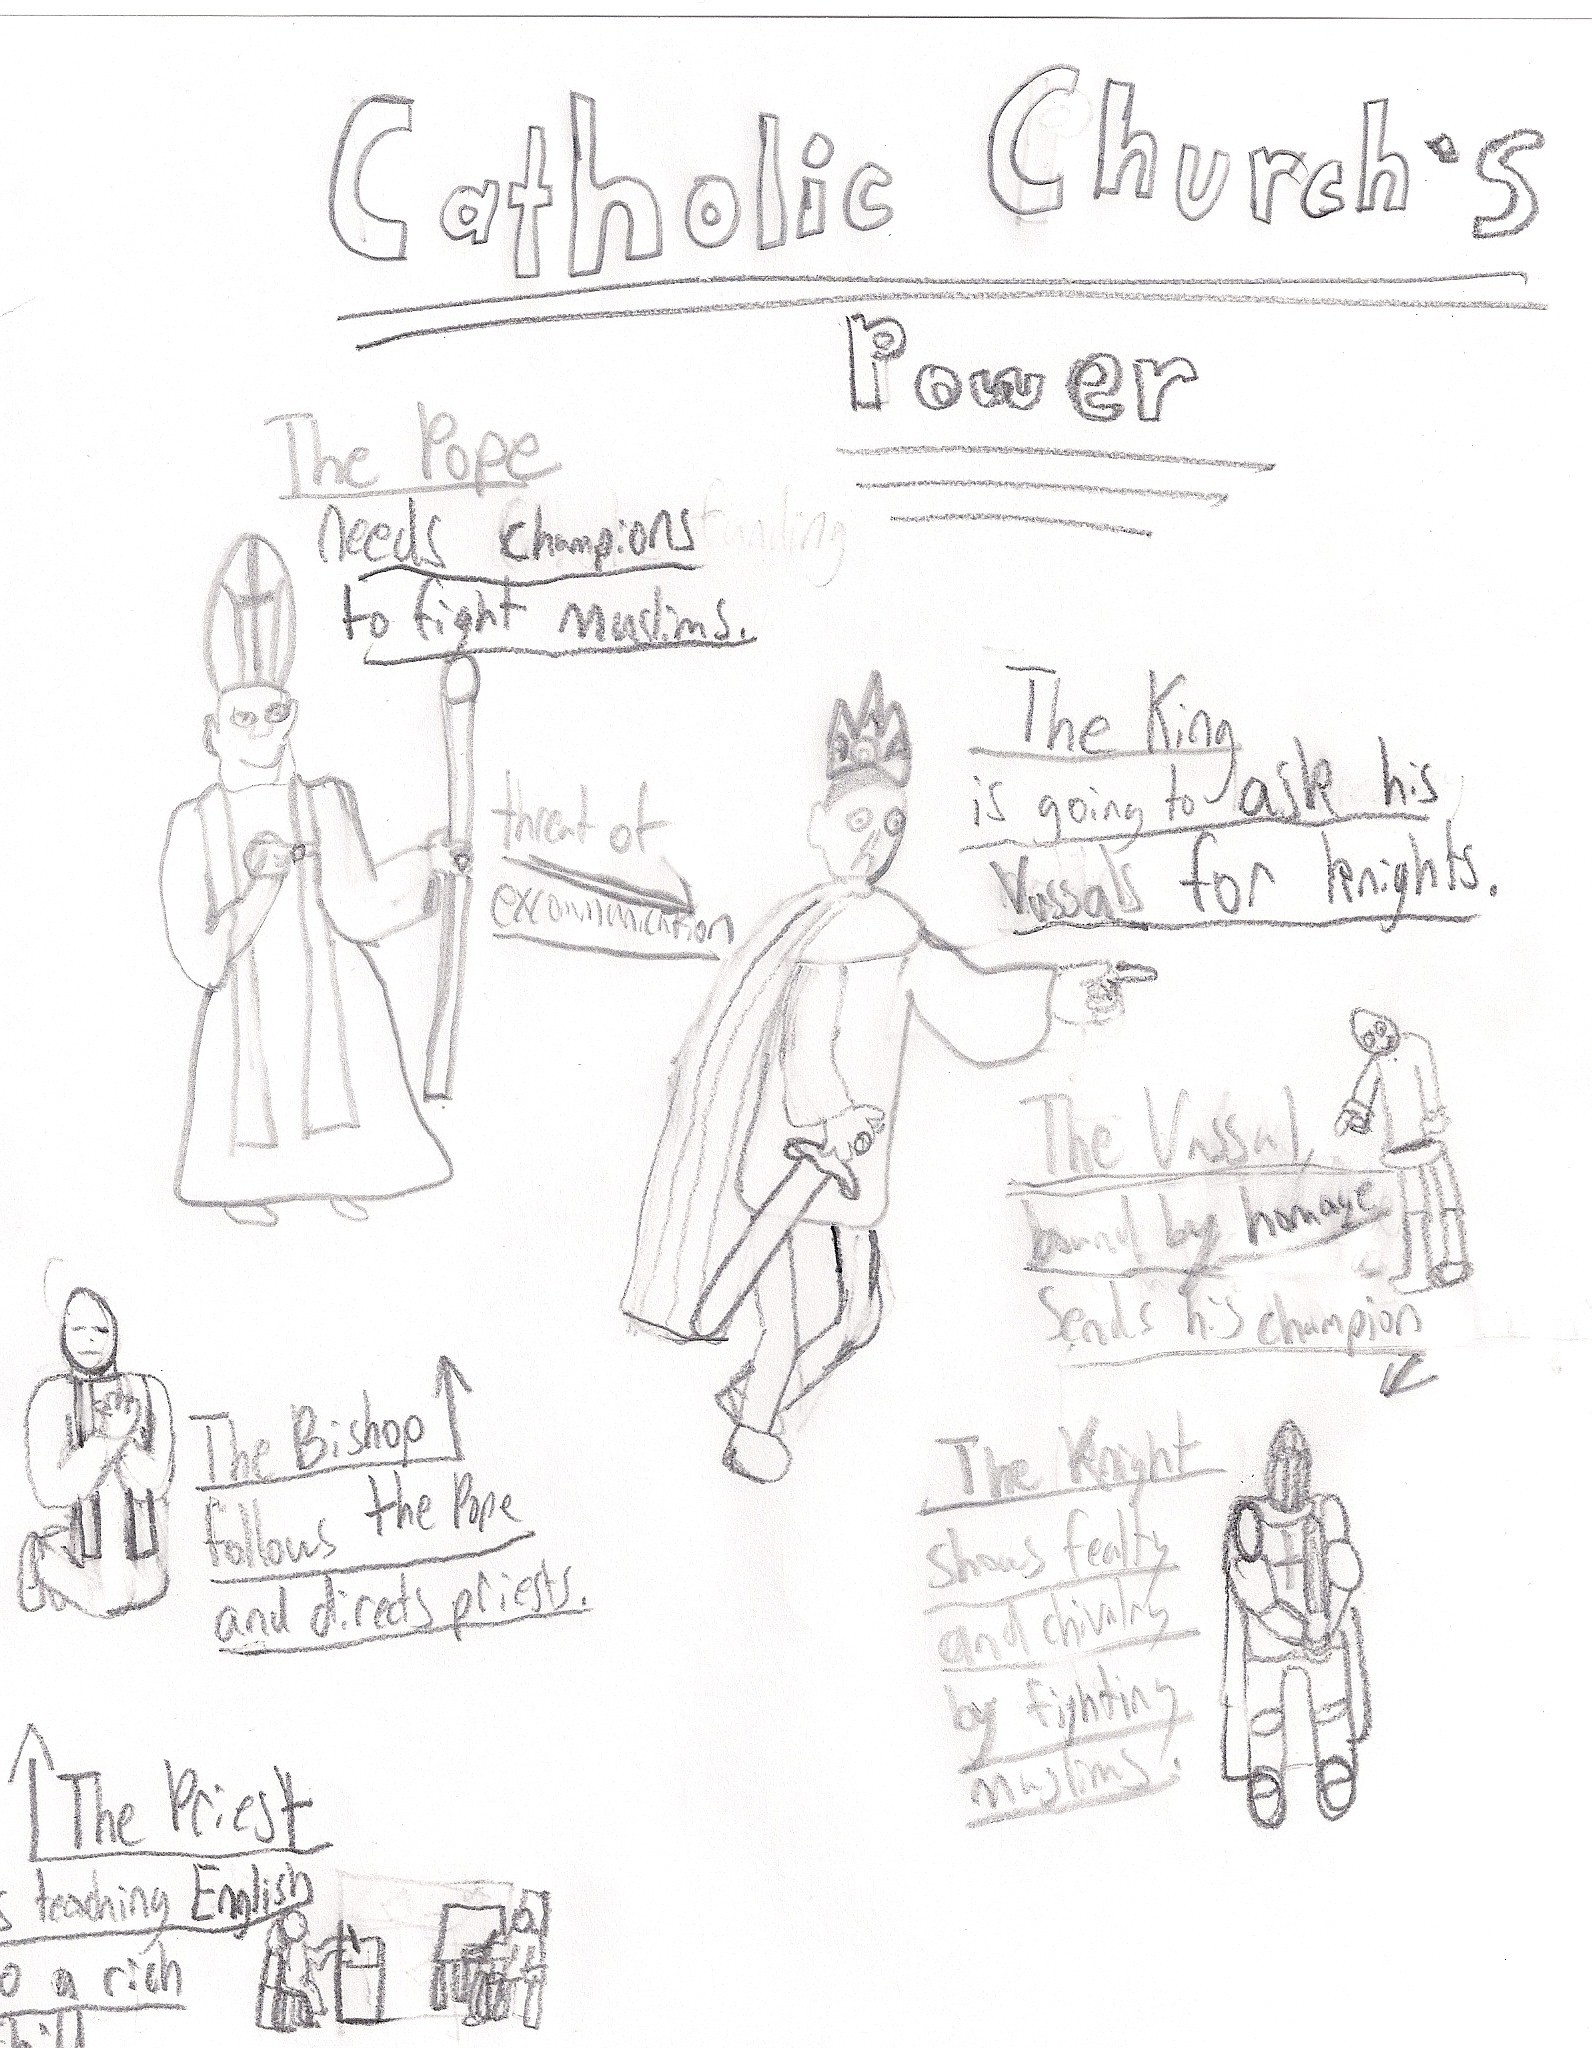 Catholic Church's
Power
The Pope
needs champions funding
to fight Muslims.
threat of
excommunication
The King
is going to ask his
Vassals for knights.
The Vassal,
bound by homage
sends his champion
The Bishop
follows the Pope
and directs priests.
The Knight
shows fealty
and chivalry
by fighting
muslims.
The Priest
s teaching English
o a rich